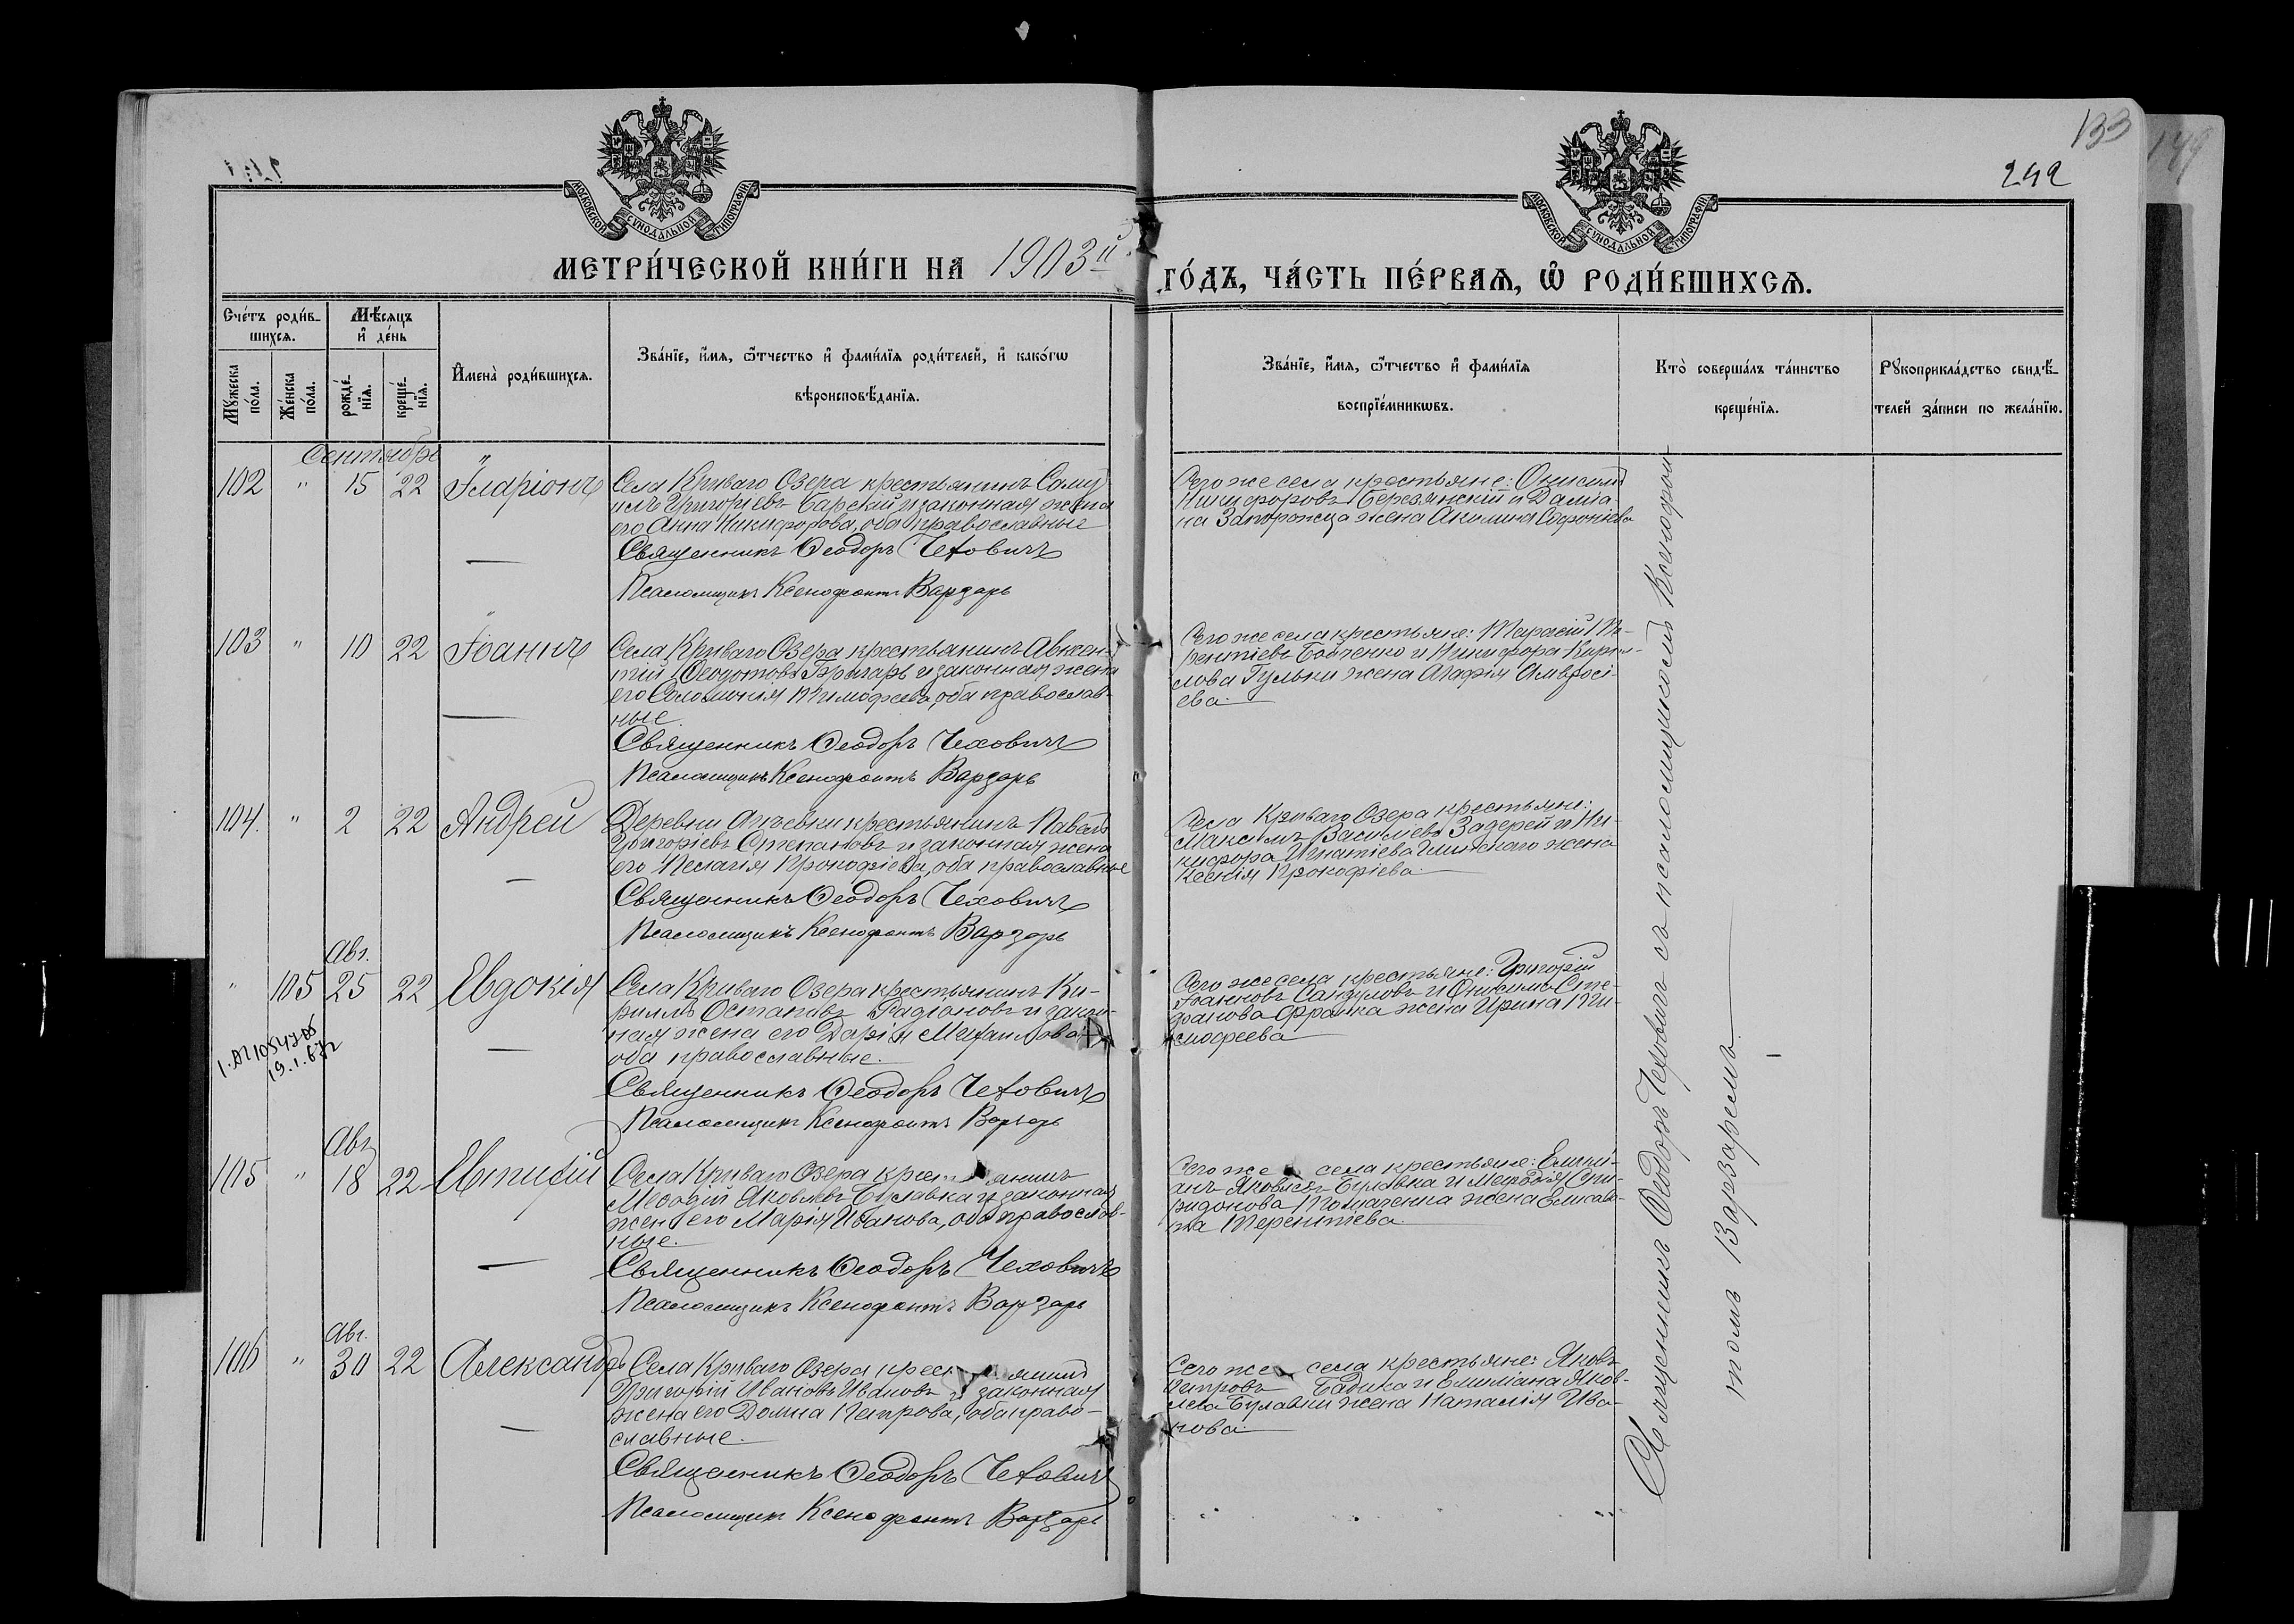 133
149
242
МОСКОВСКОЙ СѴНОДАЛЬНОЙ ТИПОГРАФІИ
МОСКОВСКОЙ СѴНОДАЛЬНОЙ ТИПОГРАФІИ
МЕТРИ́ЧЕСКОЙ КНИ́ГИ НА 1903й ГО́ДЪ, ЧА́СТЬ ПЕ́РВАЯ, Ѡ РОДИ́ВШИХСЯ.
Сче́тъ роди́в-
шихся.
Мѣ́сяцъ
и де́нь
Му́жеска по́ла.
Же́нска по́ла.
рожде́-нїя.
креще́-нїя.
Имена̀ роди́вшихся.
Зва́нїе, и́мя, ѻ́тчество и фами́лїя роди́телей, и како́гѡ
вѣроисповѣ́данїя.
Зва́нїе, и́мя, ѻ́тчество и фами́лїя
воспрїе́мникѡвъ.
Кто̀ соверша́лъ та́инство
креще́нїя.
Рꙋкоприкла́дство свидѣ́-
телей за́писи по жела́нїю.
Сентябре
102 " 15 22 Іларіонъ
Села Криваго Озера крестьянинъ Саму
илъ Григорьевъ Барскій и законная жена
его Анна Никифорова, оба православные
Священникъ Ѳеодоръ Чеховичъ
Псаломщикъ Ксенофонтъ Варзарь
Сего же села крестьяне: Онисимъ
Никифоровъ Березянскій и Даміа-
на Запорожца жена Акилина Софоніева
103 " 10 22 Іоаннъ
Села Криваго Озера крестьянинъ Авксен-
тій Ѳеодотовъ Бригарь и законная жена
его Соломонія Тимофеева, оба православ-
ные.
Священникъ Ѳеодоръ Чеховичъ
Псаломщикъ Ксенофонтъ Варзарь
Сего же села крестьяне: Тарасій Те-
рентіевъ Бойченко и Никифора Кирил-
лова Гульки жена Агафія Амвросі-
ева.
104. " 2 22 Андрей
Деревни крестьянинъ Павелъ
Григоріевъ Степановъ и законная жена
его Пелагия Прокофіева, оба православные
Священникъ Ѳеодоръ Чеховичъ
Псаломщикъ Ксенофонтъ Варзарь
Села Криваго Озера крестьяне:
Максимъ Василіевъ Задерей и Ни-
кифора Игнатіева жена
Ксенія Прокофіева.
Авг.
" 105 25 22 Евдокія
Села Криваго Озера крестьянинъ Ки-
риллъ Остаповъ Радіоновъ и закон-
ная жена его Дарія Михаилова
оба православные.
Священникъ Ѳеодоръ Чеховичъ
Псаломщикъ Ксенофонтъ Варзарь
Сего же села крестьяне: Григорій
Іоанновъ Сандуловъ и Онисима Сте-
фанова Франка жена Ирина Ти-
мофеева
19.1.
Авг.
105 " 18 22 Евтихій
Села Криваго Озера крест янинъ
Меѳодій Яковлевъ Булавка и законная
жена его Марія Иванова, оба православ-
ные.
Священникъ Ѳеодоръ Чеховичъ
Псаломщикъ Ксенофонтъ Варзарь
Сего же села крестьяне: Емилі-
анъ Яковлевъ Булавка и Меѳодія Спи-
ридонова жена Елисаве-
та Терентіева.
Авг.
106 " 30 22 Александръ
Села Криваго Озера крест янинъ
Григорій Ивановъ Ивановъ и законная
жена его Домна Петрова, оба право-
славные.
Священникъ Ѳеодоръ Чеховичъ
Псаломщикъ Ксенофонтъ Варзарь
Сего же села крестьяне: Яковъ
Петровъ Бадика и Емиліана Яков-
лева Булавки жена Наталія Ива-
нова.
Священникъ Ѳеодоръ Чеховичъ съ псаломщикомъ Ксенофон-
томъ Варзаремъ.